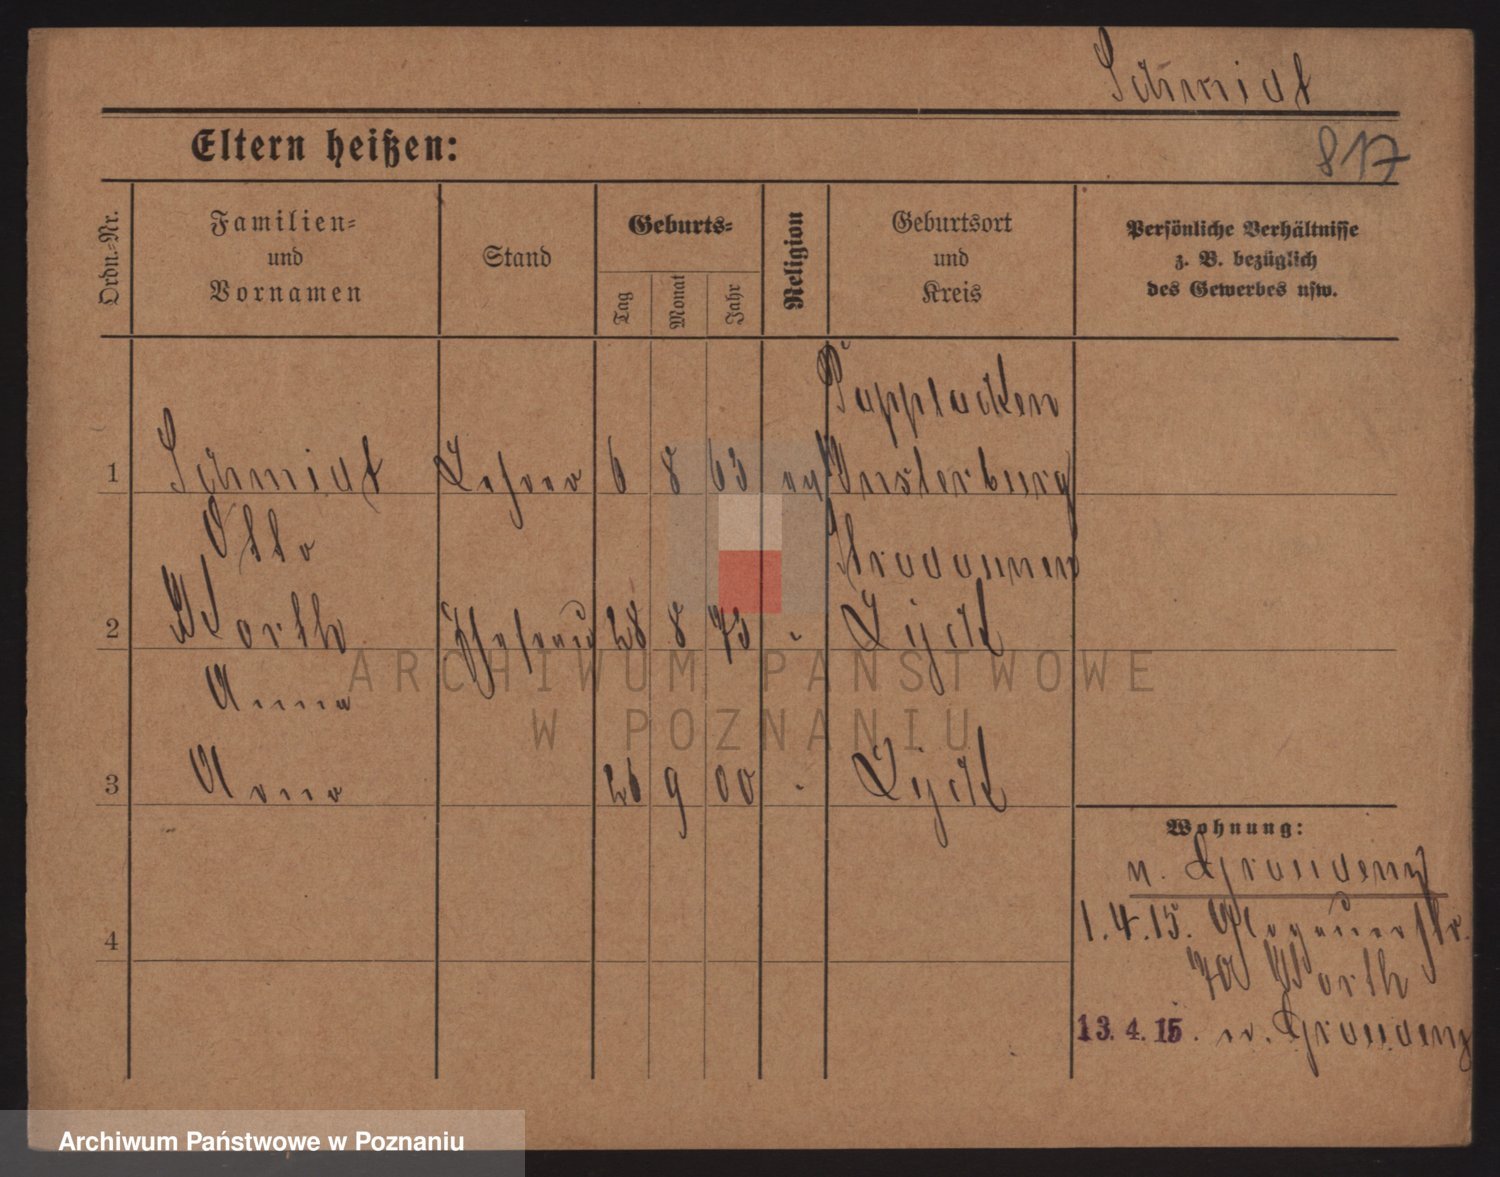 Schmidt
817
Eltern heißen:
Ordn.-Nr.
Familien-
und
Vornamen
Stand
Geburts-
Tag
Monat
Jahr
Religion
Geburtsort
und
Kreis
Persönliche Verhältnisse
z. B. bezüglich
des Gewerbes usw.
Papplacken
1 Schmidt Lehrer 6 8 63 ev Insterburg
Otto
2 Worth Ehefrau 28 8 73 " Lyck
Anna
3 Arno 26 9 00 " Lyck
4
Wohnung:
n. Graudenz
1.4.15. Glogauerstr.
Worth
13.4.15. n. Graudenz
ARCHIWUM PAŃSTWOWE
W POZNANIU
Archiwum Państwowe w Poznaniu